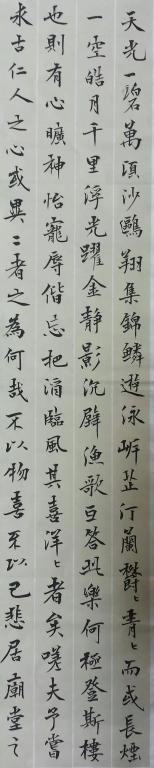 天光一碧萬頃沙鷗翔集錦鱗遊泳岸芷汀蘭欝々青々而或長煙
一空皓月千里浮光躍金静影沉璧漁歌互答此樂何極登斯樓
也則有心曠神怡寵辱偕忘把酒臨風其喜洋々者矣嗟夫予嘗
求古仁人之心或異二者之為何哉不以物喜不以己悲居廟堂之